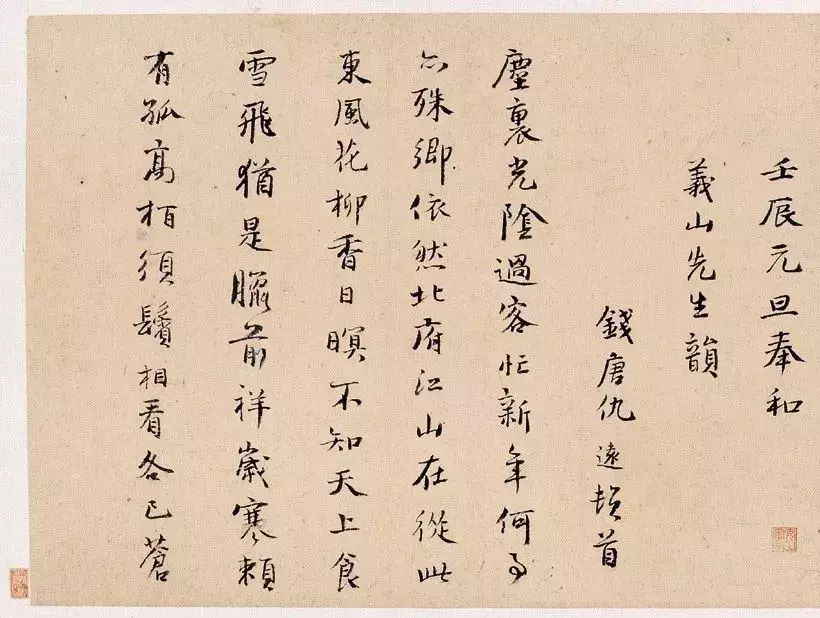 壬辰元旦奉和
義山先生韻
錢唐仇遠頓首
塵裏光陰過客忙新年何事
亦殊鄉依然北府江山在從此
東風花柳香日暝不知天上食
雪飛猶是臘前祥歲寒賴
有孤高栢須鬢相看各已蒼